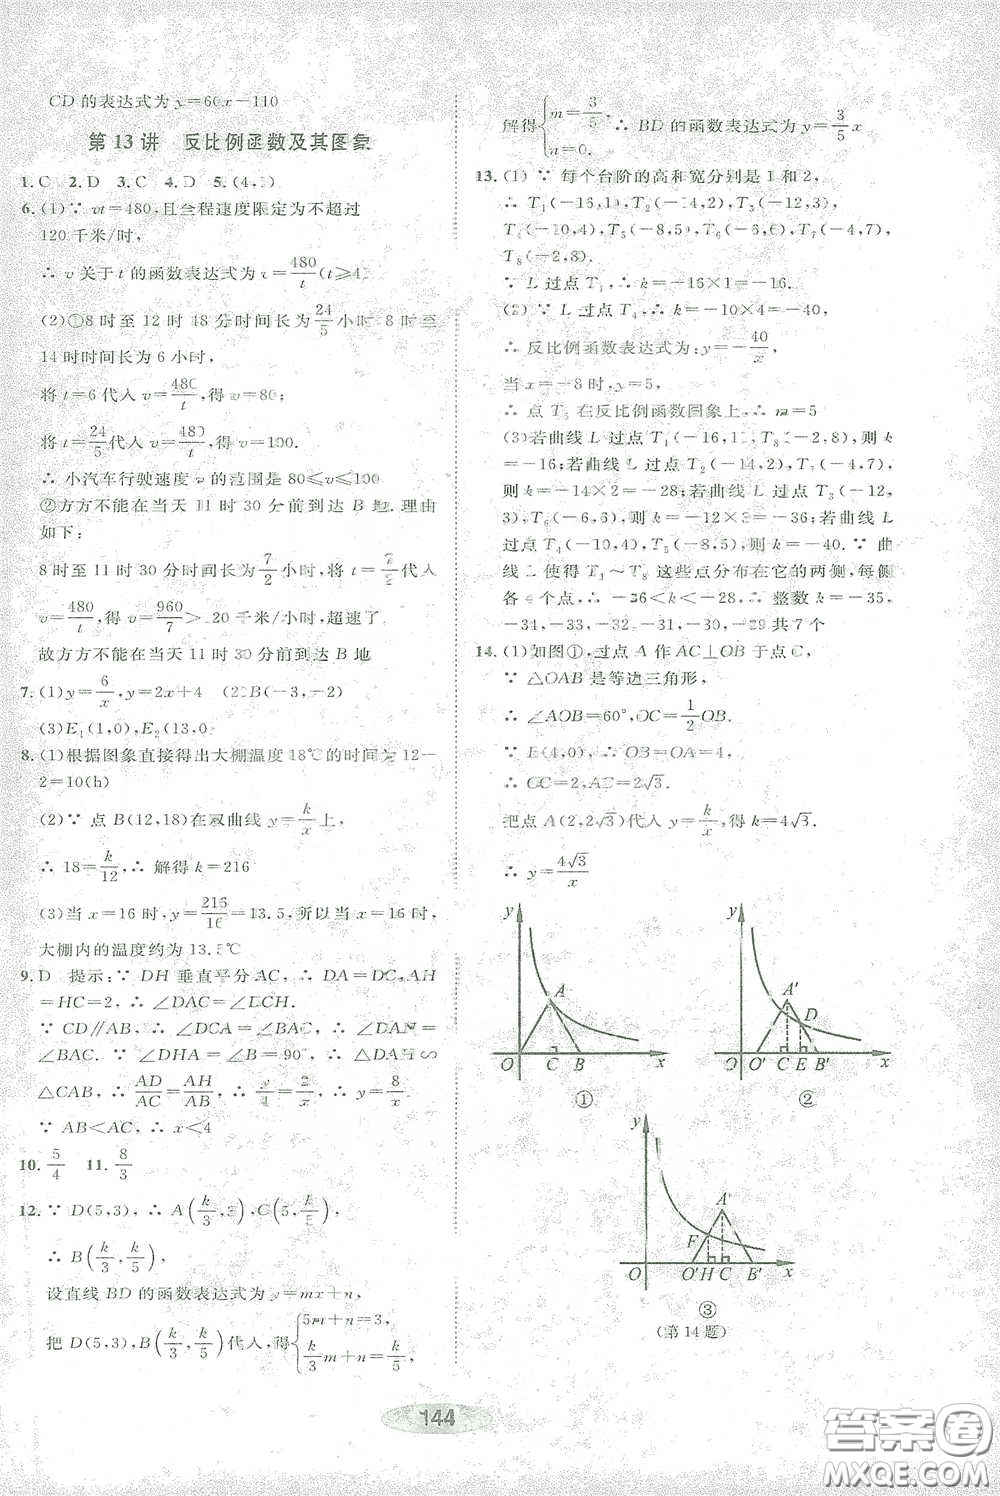 CD的表达式为y=60x-110
第13讲 反比例函数及其图象
1.C 2.D 3.C 4.D 5.(4,3)
6.(1)∵ vt=480,且全程速度限定为不超过
120千米/时,
∴ v关于t的函数表达式为v=480/t(t≥4)
(2)①8时至12时48分时间长为24/5小时,8时至
14时时间长为6小时,
将t=6代入v=480/t,得v=80;
将t=24/5代入v=480/t,得v=100.
∴ 小汽车行驶速度v的范围是80≤v≤100
②方方不能在当天11时30分前到达B地.理由
如下:
8时至11时30分时间长为7/2小时,将t=7/2代入
v=480/t,得v=960/7>120千米/时,超速了.
故方方不能在当天11时30分前到达B地
7.(1)y=6/x,y=2x+4 (2)B(-3,-2)
(3)E₁(1,0),E₂(13,0)
8.(1)根据图象直接得出大棚温度18℃的时间为12-
2=10(h)
(2)∵ 点B(12,18)在双曲线y=k/x上,
∴ 18=k/12,∴ 解得k=216
(3)当x=16时,y=216/16=13.5,所以当x=16时,
大棚内的温度约为13.5℃
9.D 提示:∵ DH垂直平分AC,∴ DA=DC,AH
=HC=2,∴ ∠DAC=∠DCH.
∵ CD∥AB,∴ ∠DCA=∠BAC,∴ ∠DAH=
∠BAC.∵ ∠DHA=∠B=90°,∴ △DAH∽
△CAB,∴ AD/AC=AH/AB,∴ y/4=2/x,∴ y=8/x.
∵ AB<AC,∴ x<4
10.5/4 11.8/3
12.∵ D(5,3),∴ A(k/3,3),C(5,k/5),
∴ B(k/3,k/5),
设直线BD的函数表达式为y=mx+n,
把D(5,3),B(k/3,k/5)代入,得{5m+n=3, k/3 m+n=k/5,
解得{m=3/5, n=0. ∴ BD的函数表达式为y=3/5x
13.(1)∵ 每个台阶的高和宽分别是1和2,
∴ T₁(-16,1),T₂(-14,2),T₃(-12,3),
T₄(-10,4),T₅(-8,5),T₆(-6,6),T₇(-4,7),
T₈(-2,8).
∵ L过点T₁,∴ k=-16×1=-16.
(2)∵ L过点T₄,∴ k=-10×4=-40,
∴ 反比例函数表达式为:y=-40/x,
当x=-8时,y=5,
∴ 点T₅在反比例函数图象上,∴ m=5
(3)若曲线L过点T₁(-16,1),T₈(-2,8),则k
=-16;若曲线L过点T₂(-14,2),T₇(-4,7),
则k=-14×2=-28;若曲线L过点T₃(-12,
3),T₆(-6,6),则k=-12×3=-36;若曲线L
过点T₄(-10,4),T₅(-8,5),则k=-40.∵ 曲
线L使得T₁~T₈这些点分布在它的两侧,每侧
各4个点,∴ -36<k<-28,∴ 整数k=-35,
-34,-33,-32,-31,-30,-29共7个
14.(1)如图①,过点A作AC⊥OB于点C,
∵ △OAB是等边三角形,
∴ ∠AOB=60°,OC=1/2OB.
∵ B(4,0),∴ OB=OA=4,
∴ OC=2,AC=2√3.
把点A(2,2√3)代入y=k/x,得k=4√3.
∴ y=4√3/x
y
A
O C B x
①
y
A'
D
O O' C E B' x
②
y
A'
F
O O' H C B' x
③
(第14题)
144
答案圈
MXQE.COM